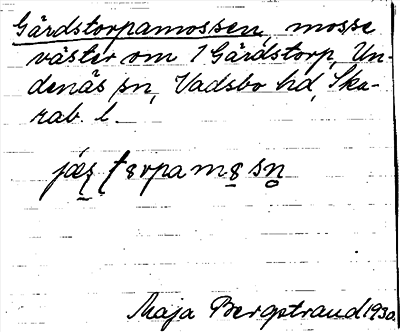 Gärdstorpamossen, mosse
väster om 1 Gärdstorp, Un-
denäs sn, Vadsbo hd, Ska-
rab. l.
Maja Bergstrand 1930.